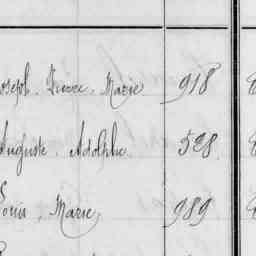 Joseph, Pierre, Marie 918
Auguste, Adolphe 528
Louis, Marie, 989